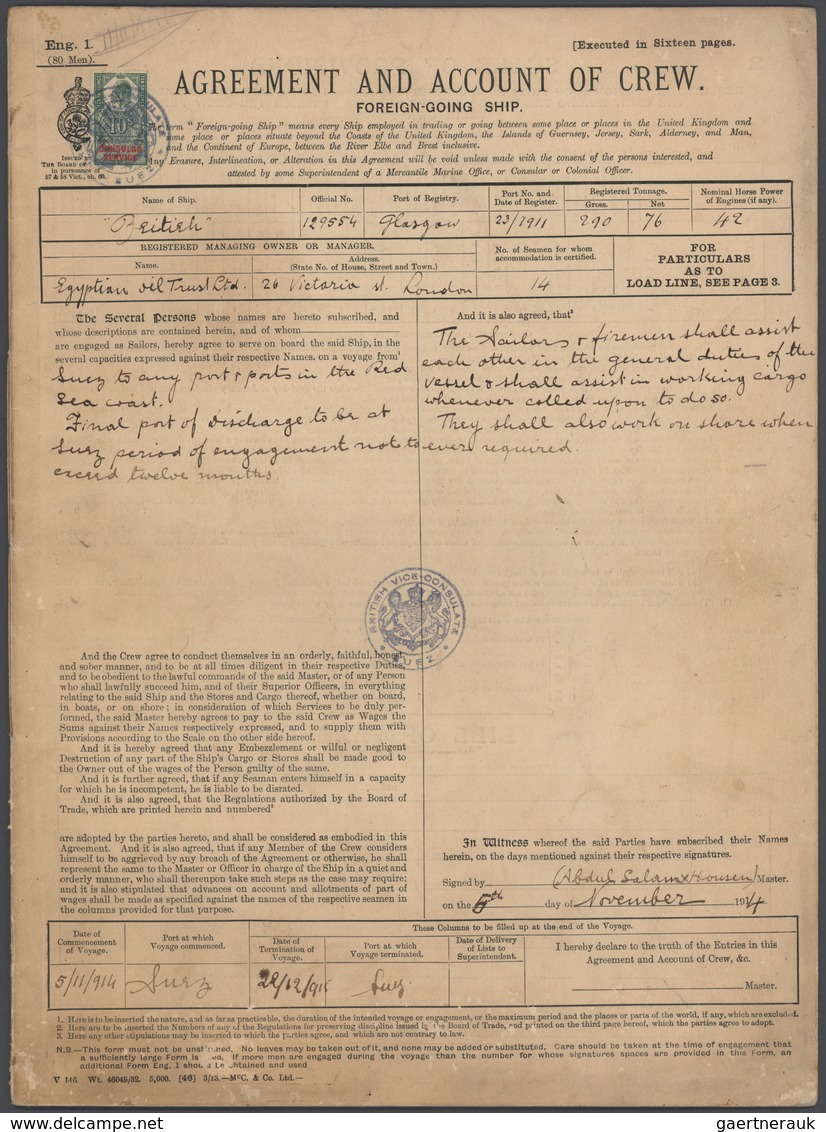 Eng. 1.
(80 Men).
[Executed in Sixteen pages.
AGREEMENT AND ACCOUNT OF CREW.
FOREIGN-GOING SHIP.
term "Foreign-going Ship" means every Ship employed in trading or going between some place or places in the United Kingdom and
some place or places situate beyond the Coasts of the United Kingdom, the Islands of Guernsey, Jersey, Sark, Alderney, and Man,
and the Continent of Europe, between the River Elbe and Brest inclusive.
Any Erasure, Interlineation, or Alteration in this Agreement will be void unless made with the consent of the persons interested, and
attested by some Superintendent of a Mercantile Marine Office, or Consular or Colonial Officer.
CONSULAR SERVICE
SUEZ
ISSUED
THE BOARD OF
in pursuance of
57 & 58 Vict., ch. 60.
Name of Ship. Official No. Port of Registry. Port No. and Date of Register. Registered Tonnage. Gross. Net Nominal Horse Power of Engines (if any).
129554 Glasgow 23/1911 290 76 42
REGISTERED MANAGING OWNER OR MANAGER.
Name. Address. (State No. of House, Street and Town.)
No. of Seamen for whom accommodation is certified.
FOR PARTICULARS AS TO LOAD LINE, SEE PAGE 3.
Egyptian oil Trust Ltd. 26 Victoria st. London 14
The Several Persons whose names are hereto subscribed, and
whose descriptions are contained herein, and of whom
are engaged as Sailors, hereby agree to serve on board the said Ship, in the
several capacities expressed against their respective Names, on a voyage from¹
Suez to any port & ports in the Red
Sea coast.
Final port of discharge to be at
Suez period of engagement not to
exceed twelve months.
And it is also agreed, that³
The Sailors & firemen shall assist
each other in the general duties of the
vessel & shall assist in working cargo
whenever called upon to do so.
They shall also work on shore when
ever required.
BRITISH VICE-CONSULATE
SUEZ
And the Crew agree to conduct themselves in an orderly, faithful, honest
and sober manner, and to be at all times diligent in their respective Duties,
and to be obedient to the lawful commands of the said Master, or of any Person
who shall lawfully succeed him, and of their Superior Officers, in everything
relating to the said Ship and the Stores and Cargo thereof, whether on board,
in boats, or on shore; in consideration of which Services to be duly per-
formed, the said Master hereby agrees to pay to the said Crew as Wages the
Sums against their Names respectively expressed, and to supply them with
Provisions according to the Scale on the other side hereof.
And it is hereby agreed that any Embezzlement or wilful or negligent
Destruction of any part of the Ship's Cargo or Stores shall be made good
to the Owner out of the wages of the Person guilty of the same.
And it is further agreed, that if any Seaman enters himself in a capacity
for which he is incompetent, he is liable to be disrated.
And it is also agreed, that the Regulations authorized by the Board of
Trade, which are printed herein and numbered²
are adopted by the parties hereto, and shall be considered as embodied in this
Agreement. And it is also agreed, that if any Member of the Crew considers
himself to be aggrieved by any breach of the Agreement or otherwise, he shall
represent the same to the Master or Officer in charge of the Ship in a quiet and
orderly manner, who shall thereupon take such steps as the case may require;
and it is also stipulated that advances on account and allotments of part of
wages shall be made as specified against the names of the respective seamen in
the columns provided for that purpose.
In Witness whereof the said Parties have subscribed their Names
herein, on the days mentioned against their respective signatures.
Signed by (Abdul Salam x Housen) Master.
on the 5th day of November 1914
These Columns to be filled up at the end of the Voyage.
Date of Commencement of Voyage. Port at which Voyage commenced. Date of Termination of Voyage. Port at which Voyage terminated. Date of Delivery of Lists to Superintendent.
I hereby declare to the truth of the Entries in this
Agreement and Account of Crew, &c.
5/11/914 Suez 22/12/915 Suez
Master.
1. Here is to be inserted the nature, and as far as practicable, the duration of the intended voyage or engagement, or the maximum period and the places or parts of the world, if any, which are excluded.
2. Here are to be inserted the Numbers of any of the Regulations for preserving discipline issued by the Board of Trade, and printed on the third page hereof, which the parties agree to adopt.
3. Here any other stipulations may be inserted to which the parties agree, and which are not contrary to law.
N.B.—This form must not be No leaves may be taken out of it, and none may be added or substituted. Care should be taken at the time of engagement that
a sufficiently large Form is If more men are engaged during the voyage than the number for whose signatures spaces are provided in this Form, an
additional Form Eng. 1 should be obtained and used
V 146. Wt. 46049/52. 5,000. [46] 3/13.—McC. & Co. Ltd.—
delcampe.net
gaertnerauk